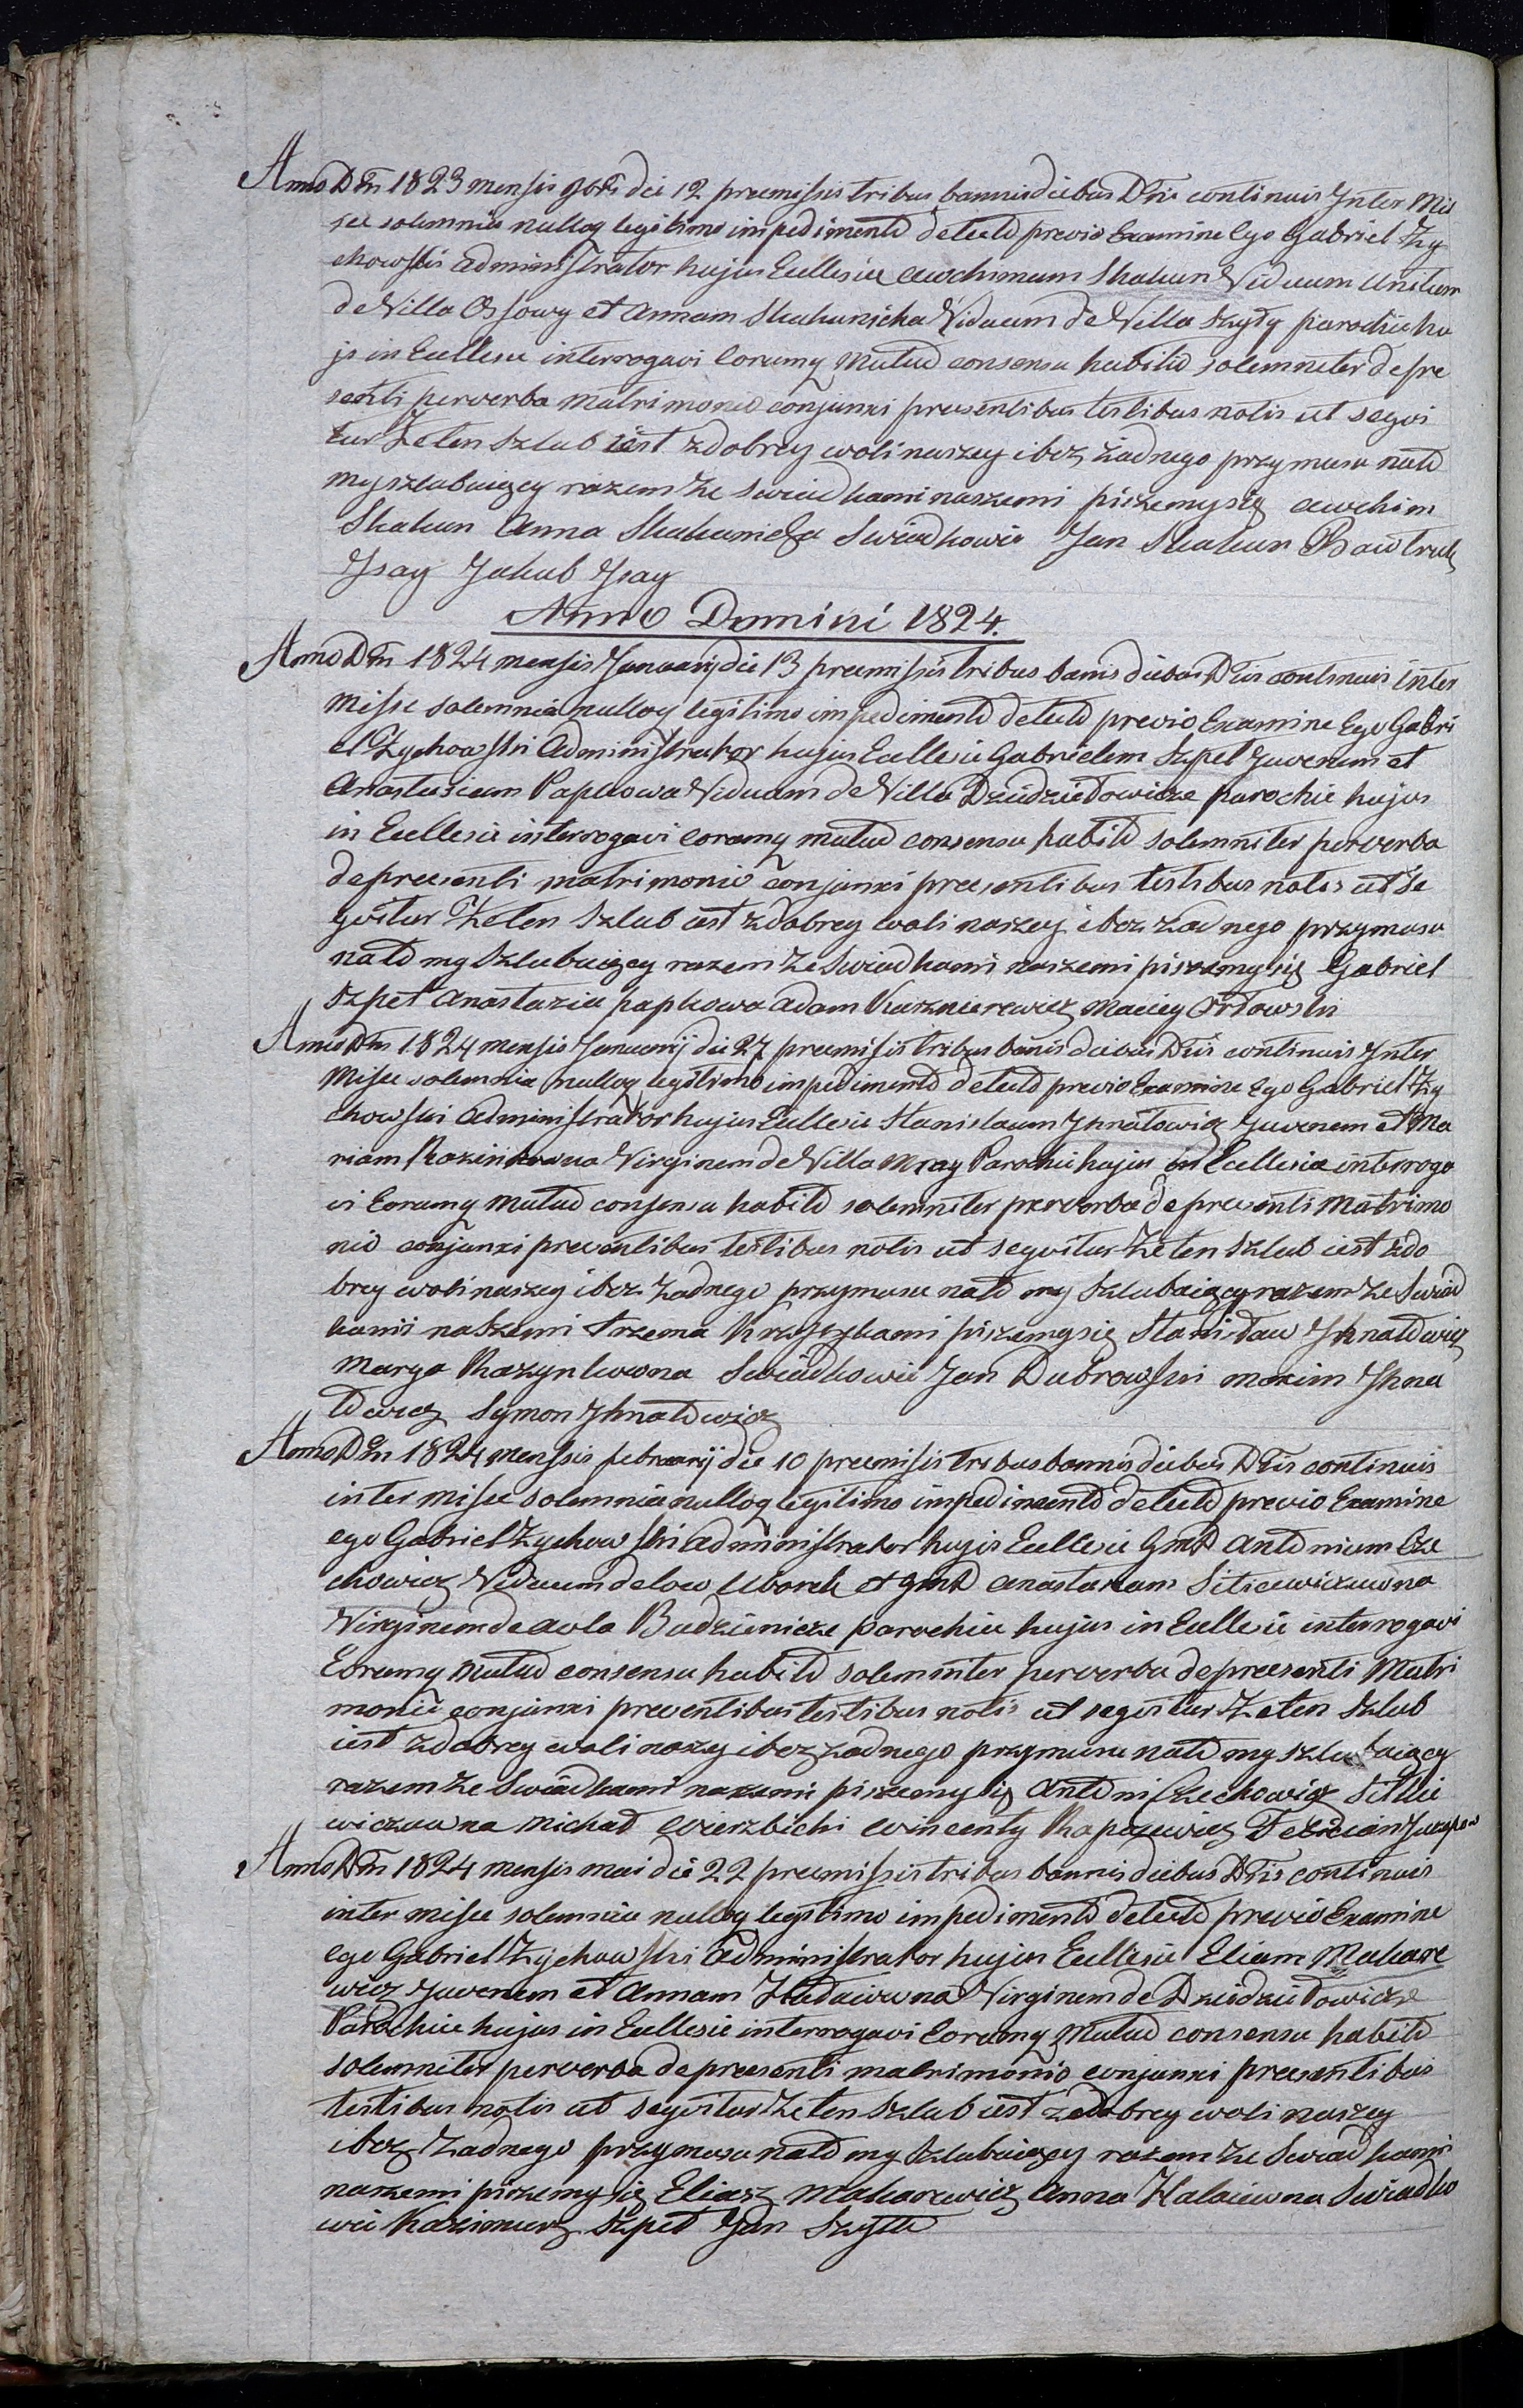 Anno Dni 1823 mensis 9bris die 12 premissis tribus bannis diebus Dnis continuis Inter Mis
see solemnia nulloq legitimo impedimento detecto previo Examine Ego Gabriel Zy
chowski Administrator hujus Ecclesiæ Awchimum Skakun Viduum Unitum
de Villa Ossowy et Annam Skakunicha Viduam de Villa Szyły parochiæ hu
js in Ecclesia interrogavi Eorumq mutuo consensu habito solemniter de pre
senti per verba matrimonio conjunxi presentibus testibus notis ut segvi
tur Że ten Szlub iest z dobrey woli naszey i bez żadnego przymusu na to
my szlubuiącey razem ze swiadkami naszemi piszemy się Awchim
Skakun Anna Skakunicha Swiadkowie Jan Skakun Bawtruk
Jsay Jakub Jsay
Anno Domini 1824.
Anno Dni 1824 mensis Januarij die 13 premissis tribus banis diebus Dnis continuis inter
Misse solemnia nulloq legitimo impedimento detecto previo Examine Ego Gabri
el Zychowski Administrator hujus Ecclesiæ Gabrielem Szpet Juvenem et
Anastasiam Papkowa Viduam de Villa Dziedziełowicze parochiæ hujus
in Ecclesia interrogavi eorumq mutuo consensu habito solemniter per verba
de preesenti matrimonio conjunxi preesentibus testibus notis ut se
gvitur Że ten Szlub iest z dobrey woli naszey i bez żadnego przymusu
na to my Szlubuiącey razem ze Swiadkami naszemi piszemy się Gabriel
Szpet Anastazia papkowa Adam Kusznierewicz Maciey Orłowski
Anno Dni 1824 mensis Januarij die 27 premissis tribus banis diebus Dnis continuis Inter
Misse solemnia nulloq legitimo impedimento detecto previo Examine Ego Gabriel Zy
chowski Administrator hujus Ecclesiæ Stanislaum Jhnatowicz Juvenem et Ma
riam Razinkowna Virginem de Villa Mray Parochiæ hujus in Ecclesia interroga
vi Eorumq mutuo consensu habito solemniter per verba de preesenti Matrimo
nio conjunxi presentibus testibus notis ut segvitur Że ten Szlub iest z do
brey woli naszey i bez żadnego przymusu na to my Szlubuiącey razem ze Swiad
kami naszemi trzema krzyżykami piszemy się Stanisław Jhnatowicz
Marya Razynkowna Swiadkowie Jan Dubrowski Maxim Jhna
towicz Symon Jhnatowicz
Anno Dni 1824 mensis februarij die 10 premissis tribus bannis diebus Dnis continuis
inter misse solemnia nulloq legitimo impedimento detecto previo Examine
ego Gabriel Zychowski Administrator hujus Ecclesiæ Antonium Cze
chowicz Viduum de Uborek et Anastasiam Siticewiczuwna
Virginem de Aula Budzienicze parochiæ hujus in Ecclesia interrogavi
Eorumq mutuo consensu habito solemniter per verba de preesenti Matri
monio conjunxi presentibus testibus notis ut segvitur Że ten Szlub
iest z dobrey woli naszey i bez żadnego przymusu na to my szlubuiącey
razem ze Swiadkami naszemi piszemy się Antoni Czechowicz
wiczuwna Michał Wierzbicki Wincenty Felician
Anno Dni 1824 mensis mai die 22 premissis tribus bannis diebus Dnis continuis
inter misse solemnia nulloq legitimo impedimento detecto previo Examine
ego Gabriel Zychowski Administrator hujus Ecclesiæ Eliam Makare
wicz Juvenem et Annam Hałaiewna Virginem de Dziedziełowicze
Parochiæ hujus in Ecclesia interrogavi Eorumq mutuo consensu habito
solemniter per verba de preesenti matrimonio conjunxi preesentibus
testibus notis ut segvitur Że ten Szlub iest z dobrey woli naszey
i bez żadnego przymusu na to my Szlubuiącey razem ze Swiadkami
naszemi piszemy się Eliasz Makarewicz Anna Halaiewna Swiadko
wie Kazimierz Szpet Jan Szyłło